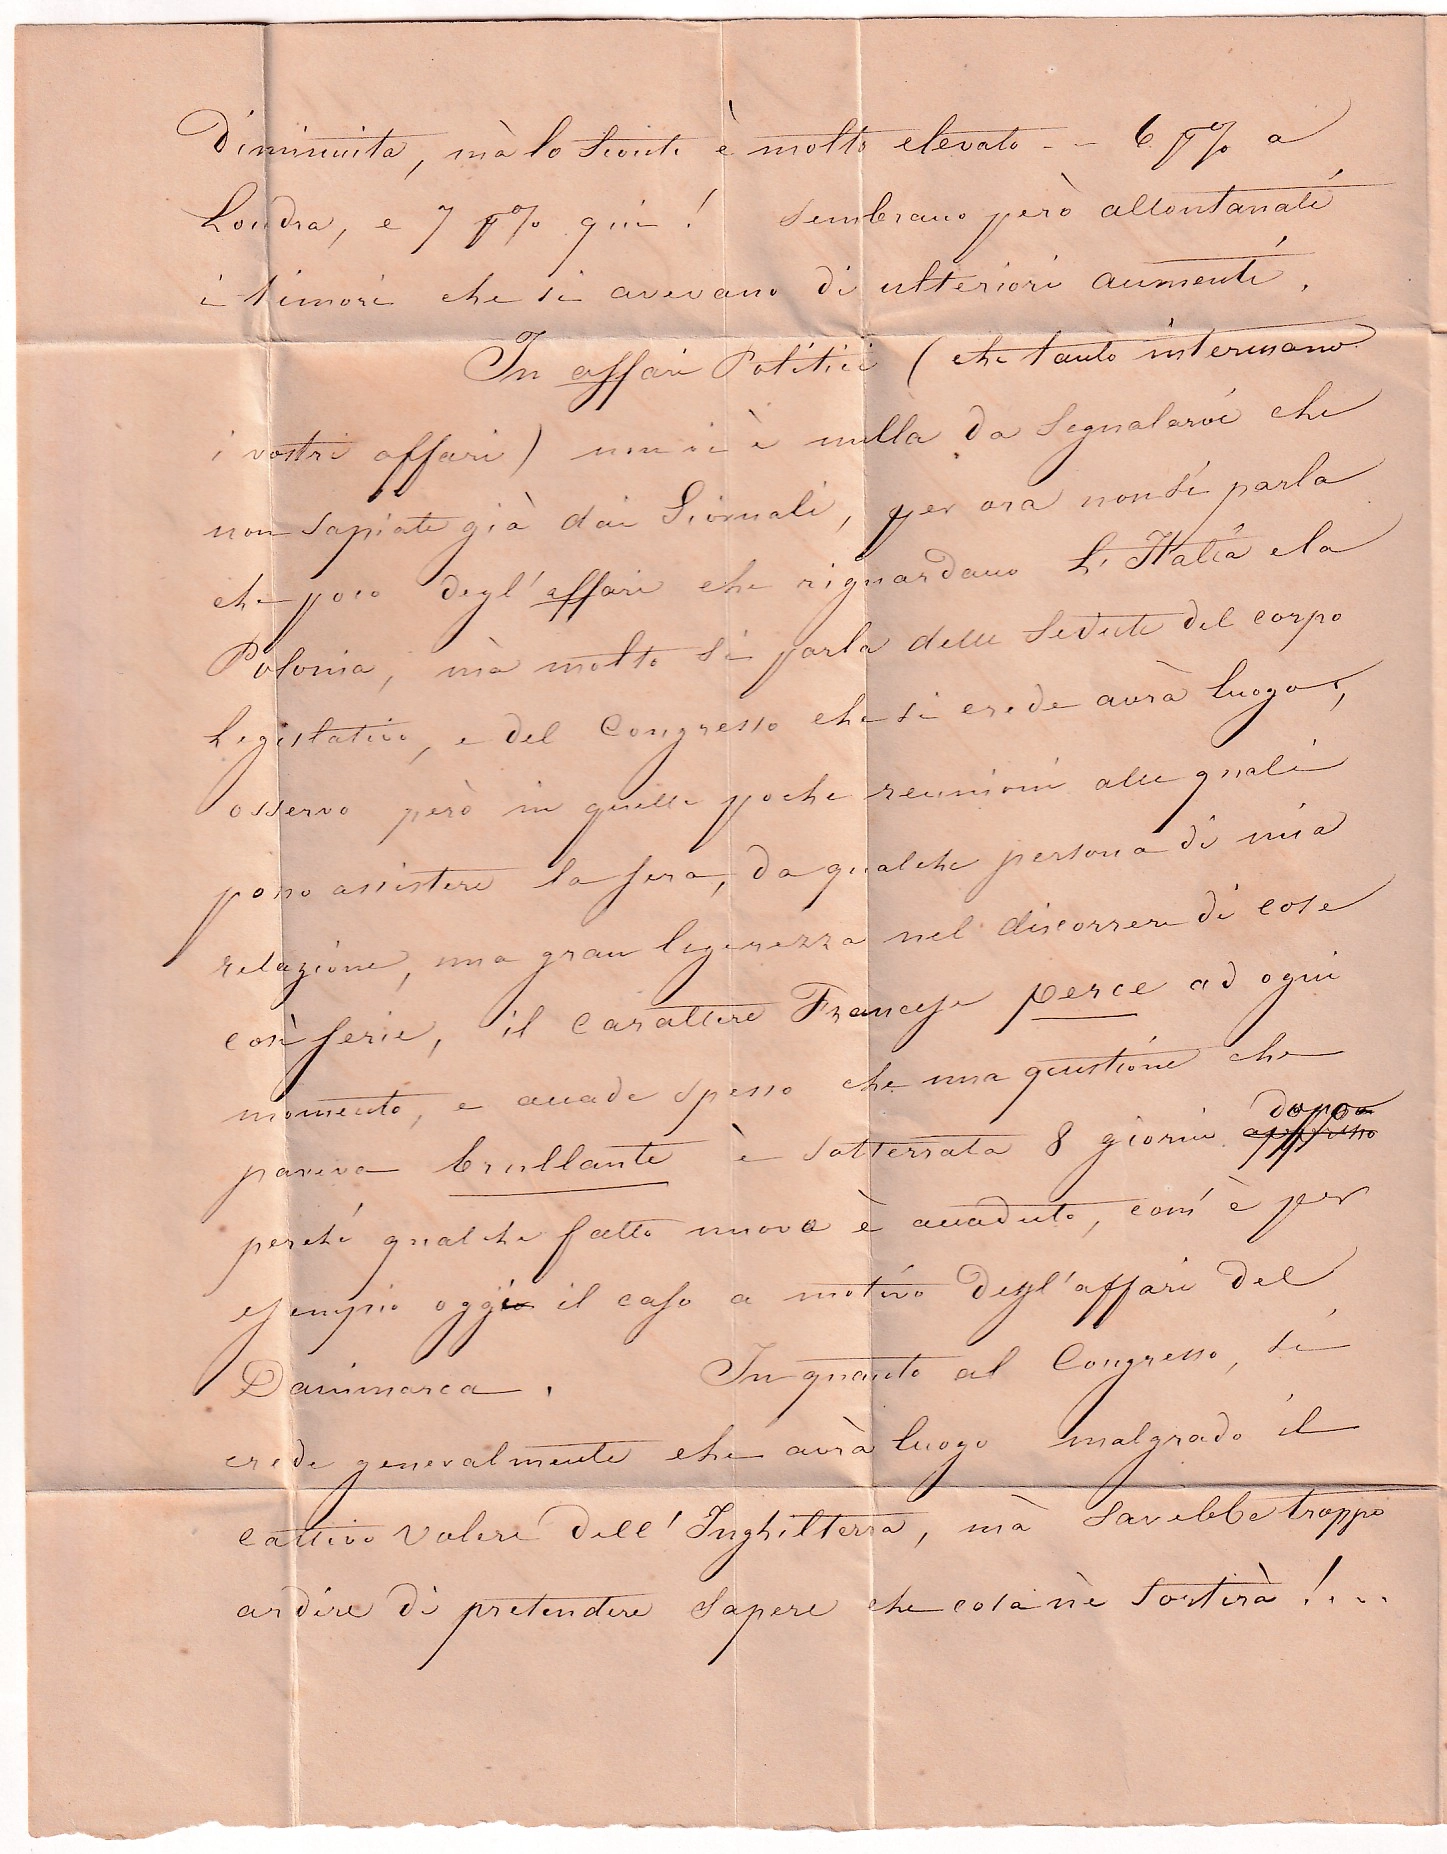 diminuita, mà lo Sconto è molto elevato - - 6 p% a
Londra, e 7 p% qui! Sembrano però allontanati
i timori che si avevano di ulteriori aumenti.
In affari Politici (che tanto interessano
i vostri affari) non vi è nulla da Segnalarvi che
non sapiate già dai Giornali, per ora non si parla
che poco degl'affari che riguardano L'Italia e la
Polonia, mà molto si parla delle Sedute del corpo
Legislativo, e del Congresso che si crede avrà luogo;
osservo però in quelle poche reunioni alle quali
posso assistere la sera, da qualche persona di mia
relazione, una gran legerezza nel discorrere di cose
così serie, il carattere Francese perce ad ogni
momento, e accade spesso che una questione che
pareva brullante è sotterrata 8 giorni dopo
appresso
perché qualche fatto nuovo è accaduto, com'è per
esempio oggi il caso a motivo degl'affari del
Danimarca. In quanto al Congresso, si
crede generalmente che avrà luogo malgrado il
cattivo volere dell'Inghilterra, mà sarebbe troppo
ardire di pretendere sapere che cosa nè sortirà!...